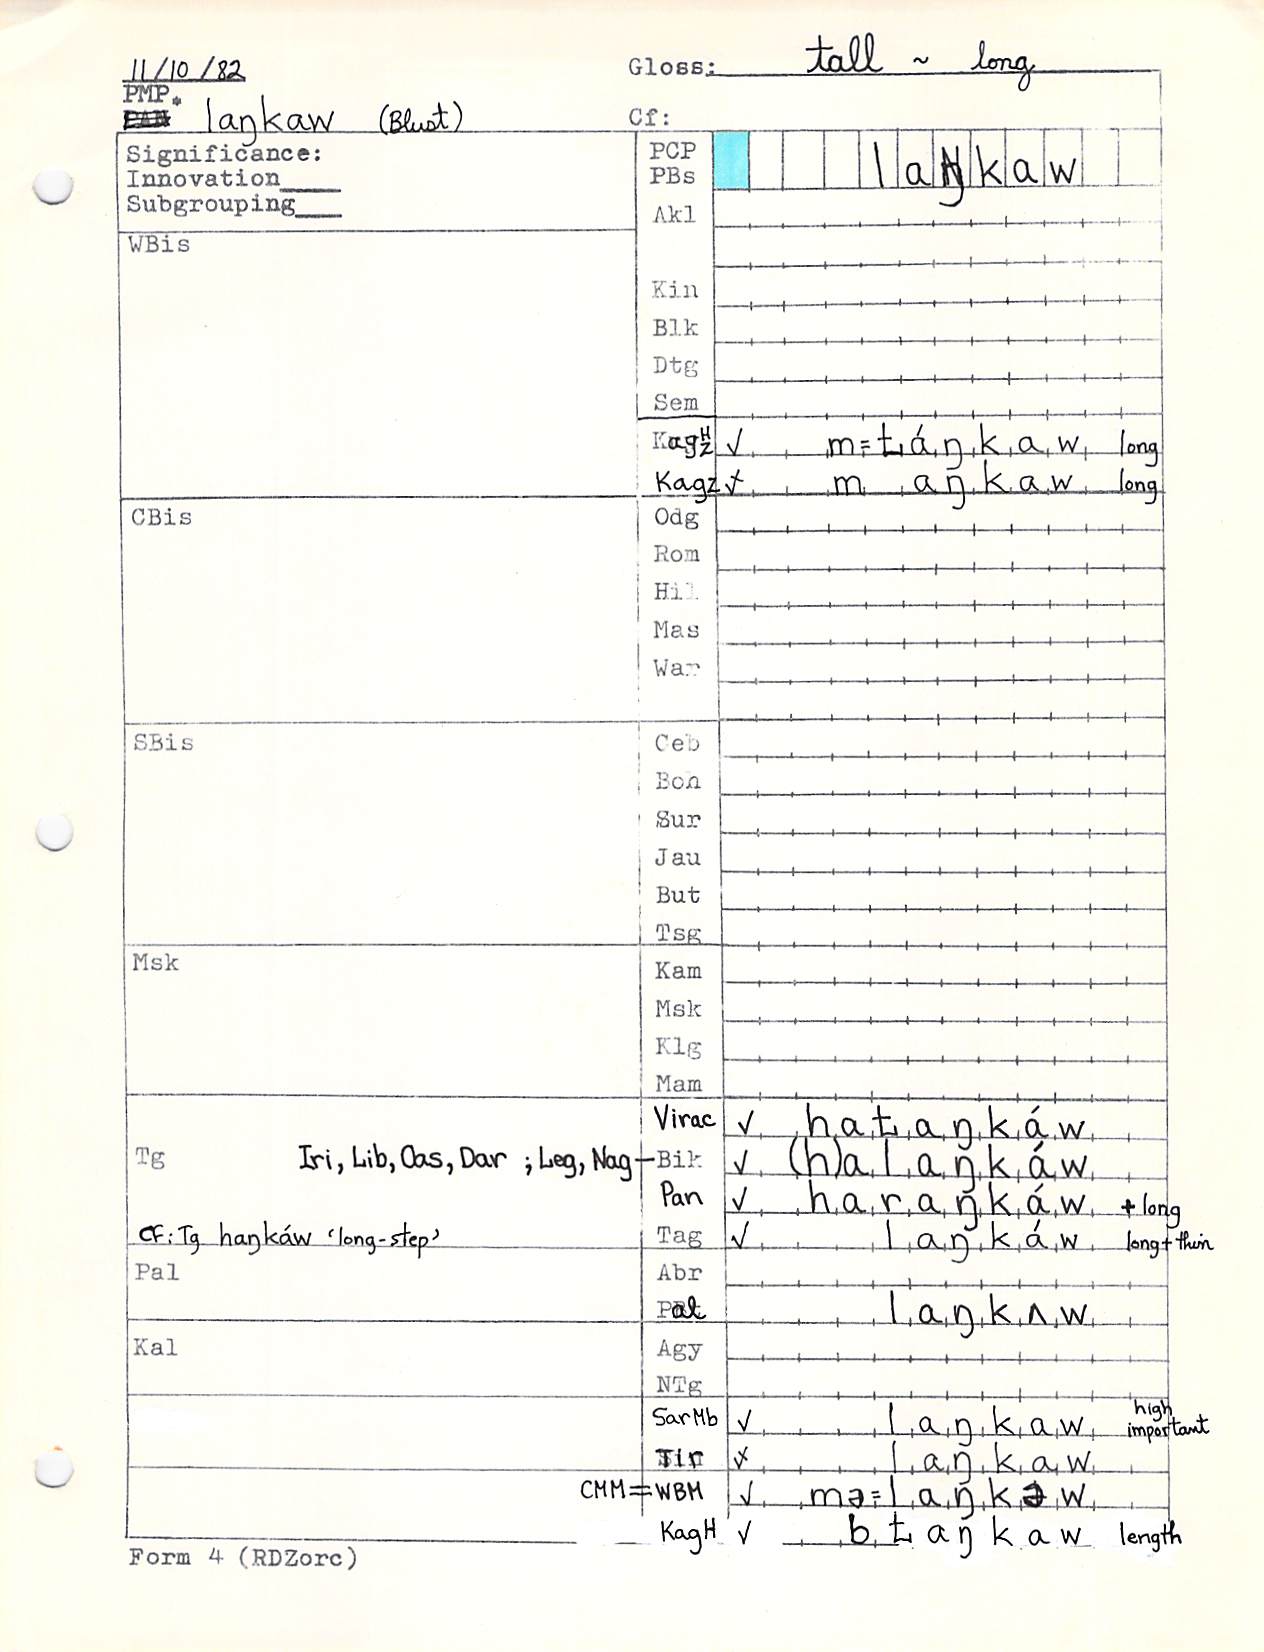 11/10/82 Gloss: tall ~ long
PMP.
laŋkaw (Blust) Cf:
Significance:
Innovation
Subgrouping
PCP
PBs laŋkaw
Akl
WBis
Kin
Blk
Dtg
Sem
Kag H Z ✓ m=ƚáŋkaw long
Kagz ✓ m aŋkaw long
CBis Odg
Rom
Hil
Mas
War
SBis Ceb
Boh
Sur
Jau
But
Tsg
Msk Kam
Msk
Klg
Mam
Virac ✓ haƚaŋkáw
Tg Iri, Lib, Oas, Dar ; Leg, Nag Bik ✓ (h)alaŋkáw
Pan ✓ haraŋkáw + long
CF: Tg haŋkáw ‘long-step’ Tag ✓ laŋkáw long + thin
Pal Abr
Pal laŋkʌw
Kal Agy
NTg
SarMb ✓ laŋkaw high important
Tir ✓ laŋkaw
CMM = WBM ✓ mə=laŋkəw
KagH ✓ bƚaŋkaw length
Form 4 (RDZorc)